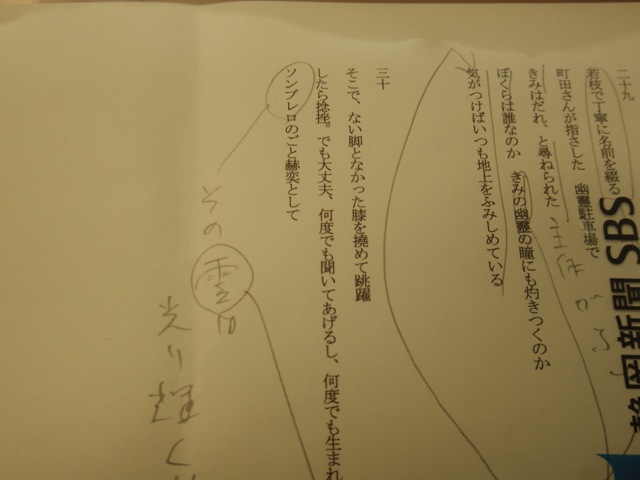 二十九
若枝で丁寧に名前を綴る
町田さんが指さした　幽霊駐車場で
きみはだれ、と尋ねられた
ぼくらは誰なのか　きみの幽靈の瞳にも灼きつくのか
気がつけばいつも地上をふみしめている
三十
そこで、ない脚となかった膝を撓めて跳躍
したら捻挫。でも大丈夫、何度でも聞いてあげるし、何度でも生まれ
ソンブレロのごと赫奕として
その
光り輝く
静岡新聞 SBS